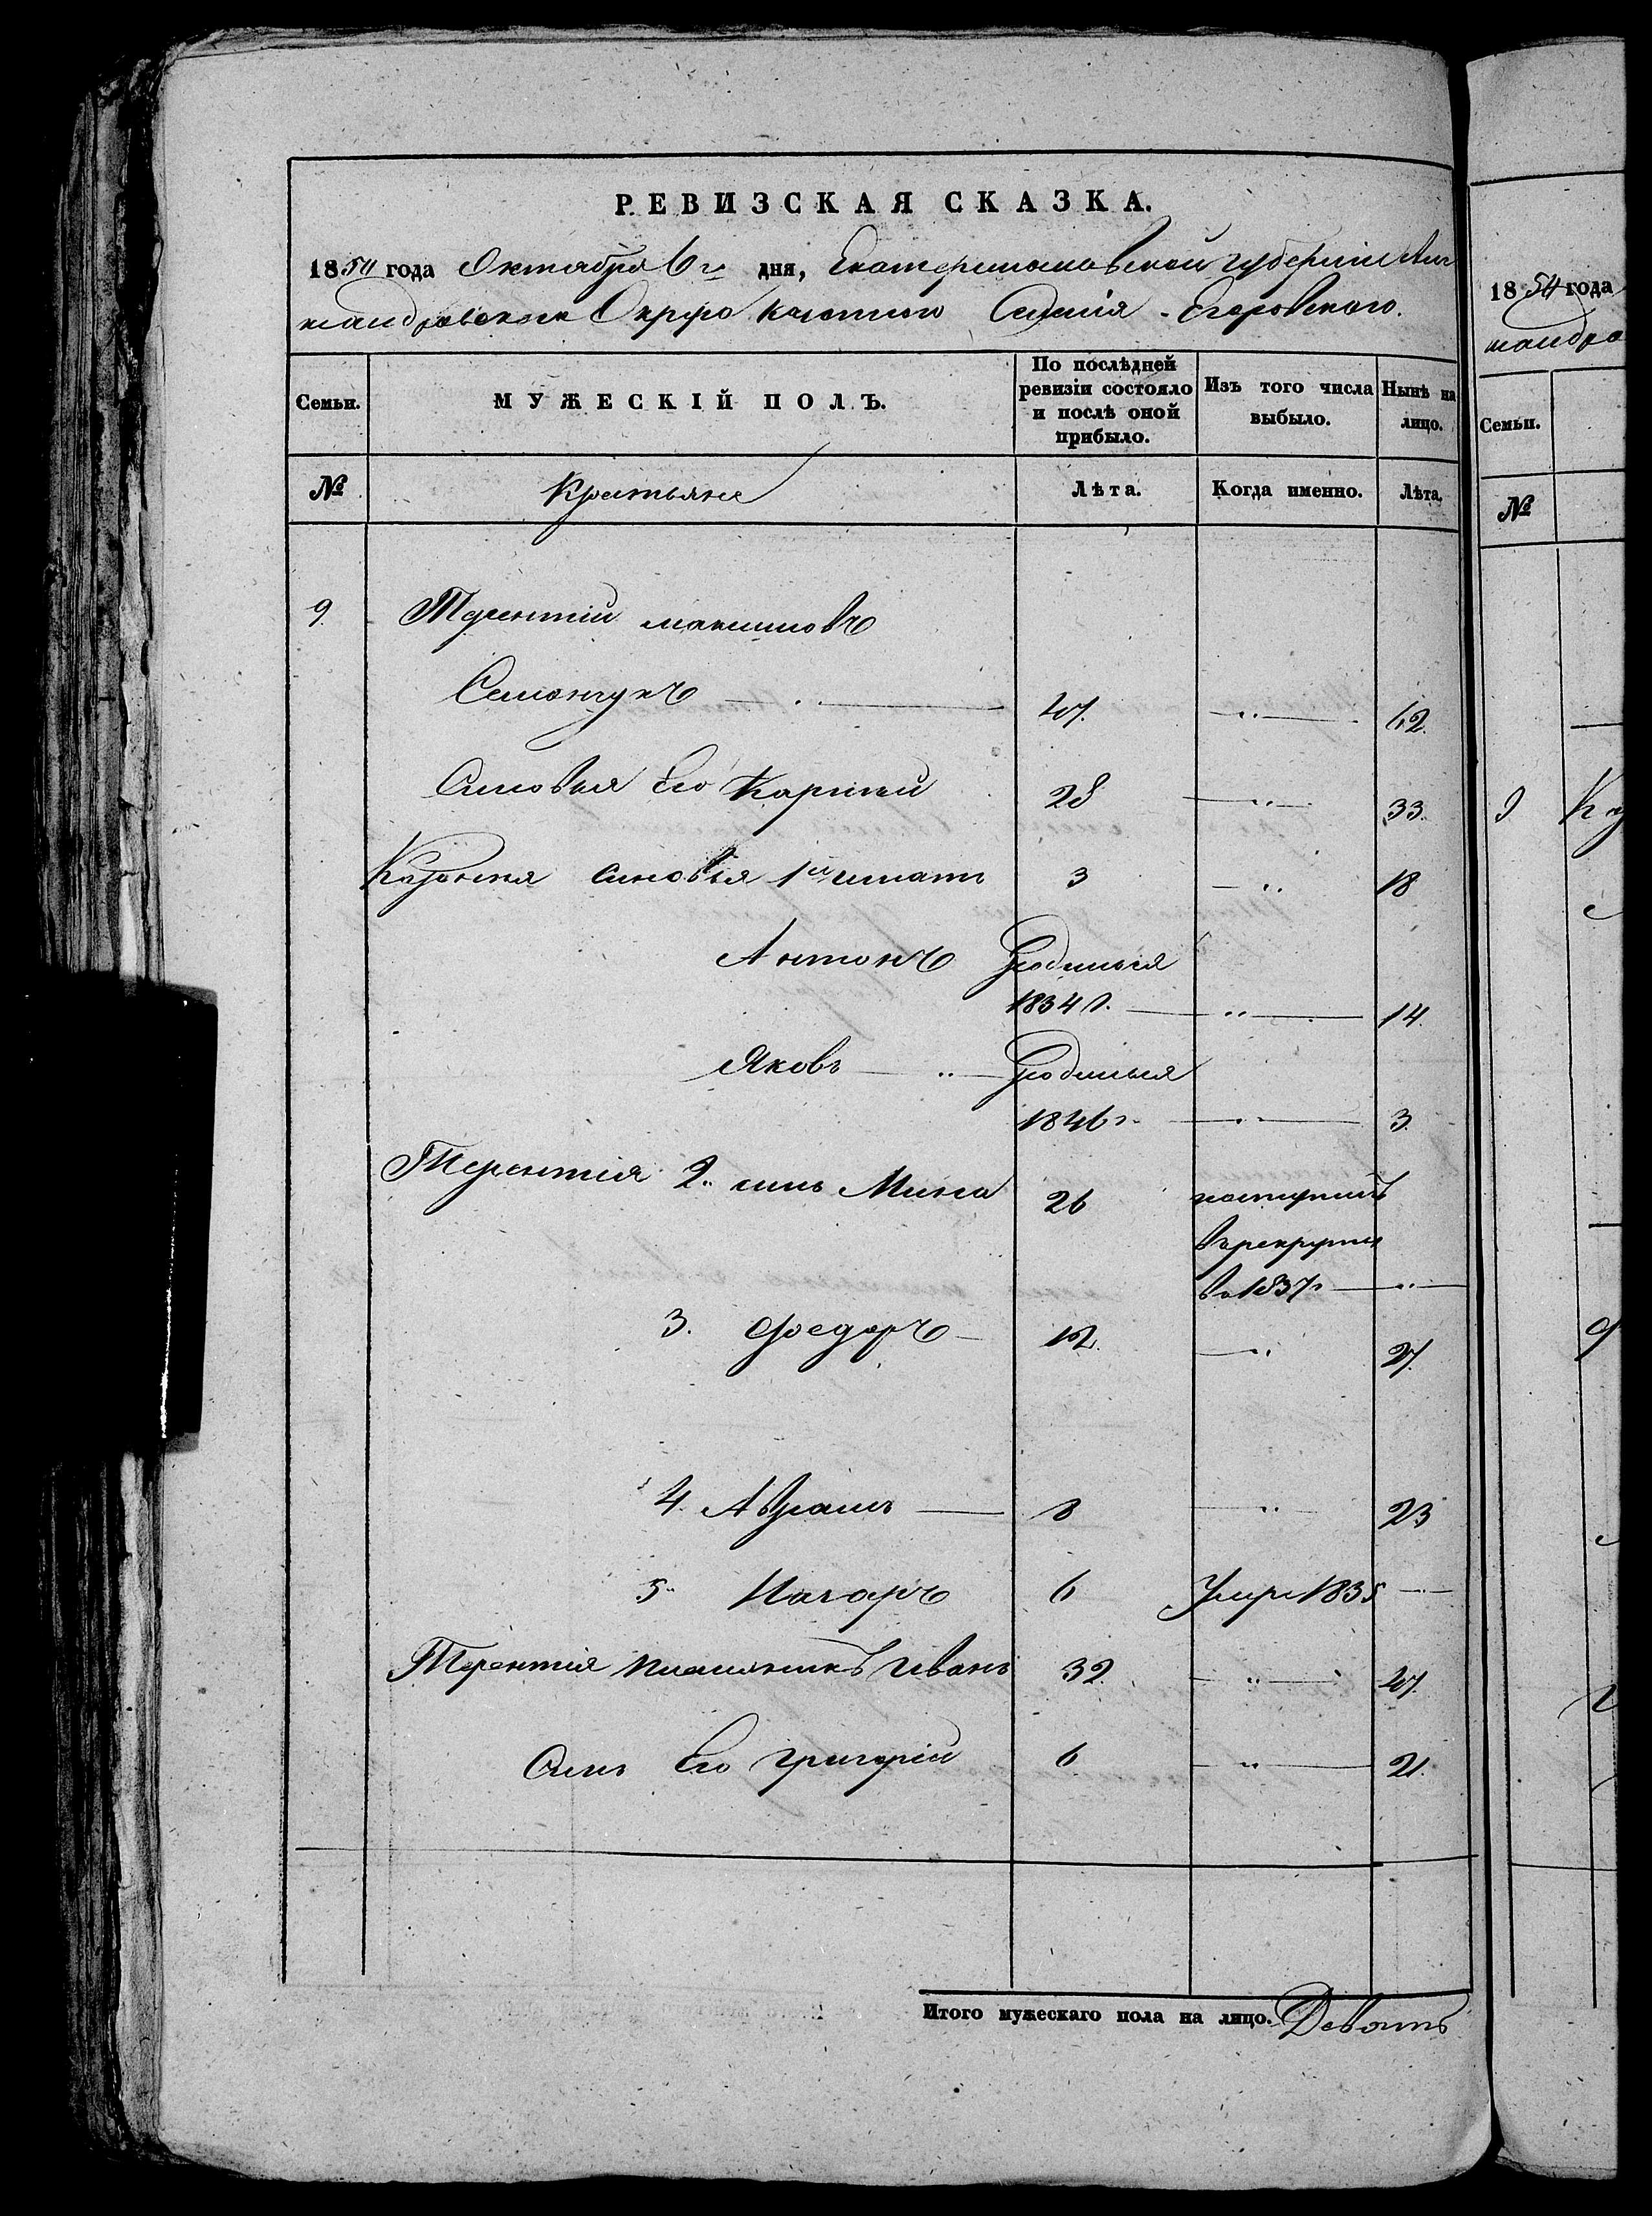 РЕВИЗСКАЯ СКАЗКА.
1850 года Октября 6го дня, Екатеринославской губернии Алек
сандровскаго Округа казенного Селения Егоровского.
Семьи. МУЖЕСКІЙ ПОЛЪ. По послѣдней ревизіи состояло и послѣ оной прибыло. Изъ того числа выбыло. Нынѣ на лицо.
№ Крестьяне Лѣта. Когда именно. Лѣта.
9. Терентій Максимовъ
Семенчукъ 47. 62.
Сыновья Его Карпий 28 33.
сыновья 1й 3 18
Антонъ Родился
1834 г. 14.
Яковъ Родился
1846 г. 3.
Терентія 2. сынъ Мина 26 поступилъ
въ рекруты
въ 1837 г
3. Федоръ 12. 27.
4. Аврамъ 8 23
5. Назаръ 6 Умре 1835
Терентія племянникъ Иванъ 32. 47.
Сынъ Его Григорій 6 21.
Итого мужескаго пола на лицо. Девять
1850 года
сандро
Семьи.
№
9